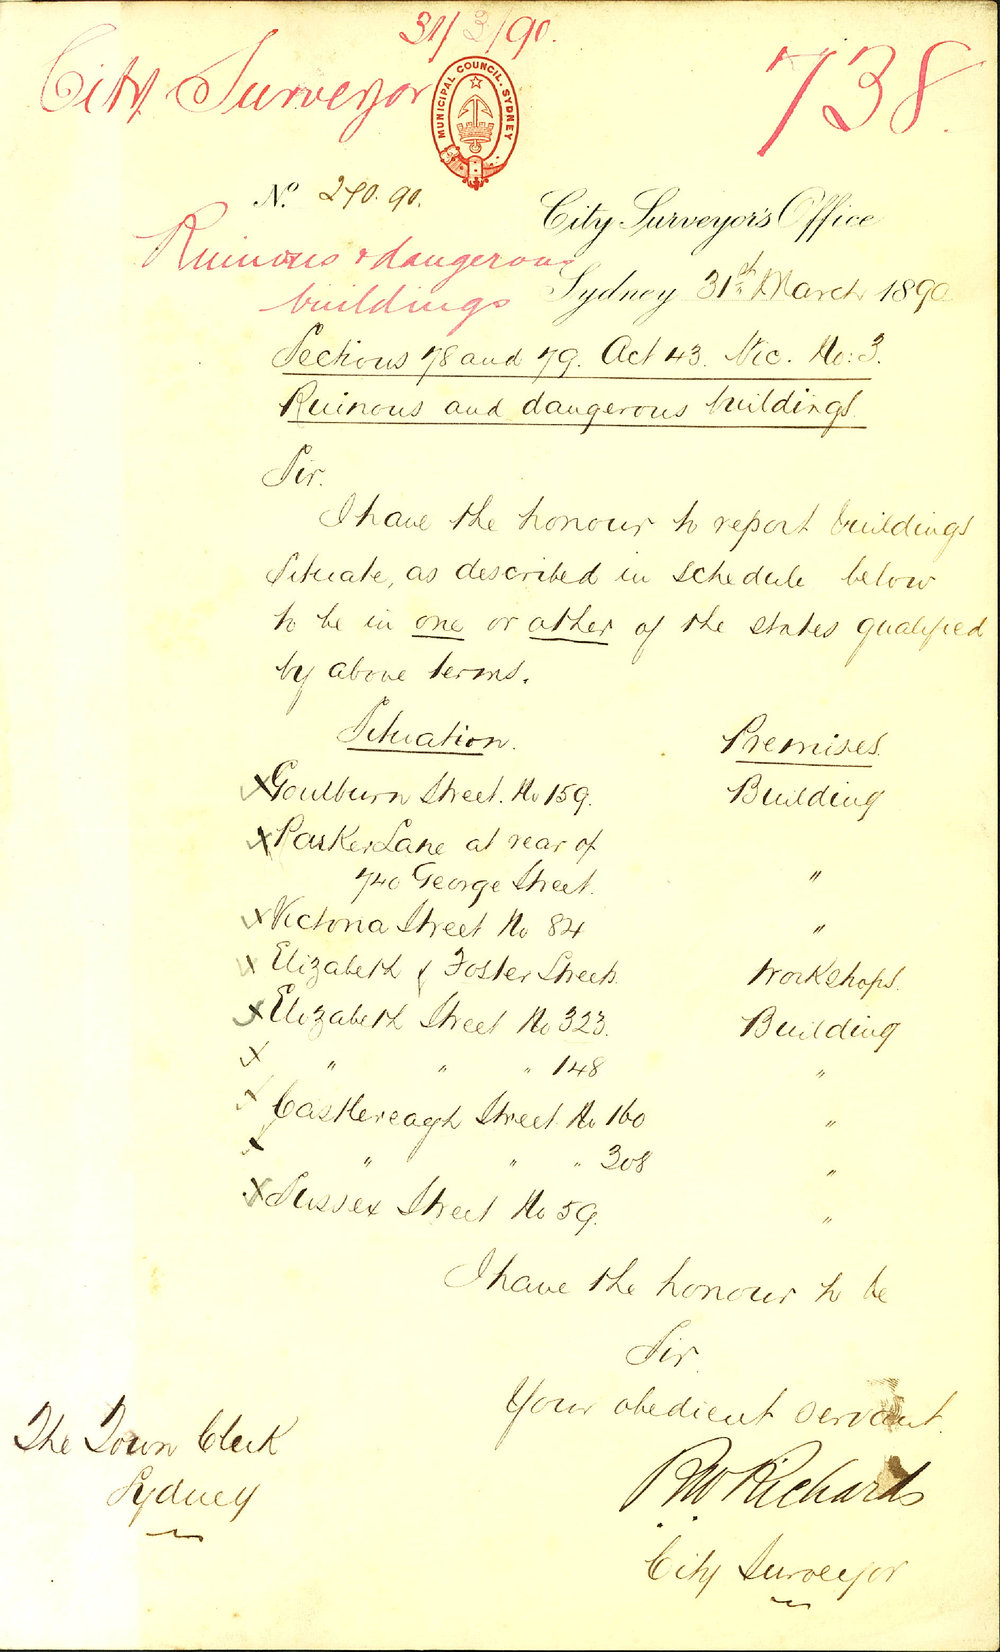 31/3/90.
City Surveyor
MUNICIPAL COUNCIL. SYDNEY
738.
No. 290.90.
City Surveyor's Office
Ruinous & dangerous
buildings
Sydney 31st March 1890
Sections 78 and 79. Act 43. Vic. No: 3.
Ruinous and dangerous buildings.
Sir.
I have the honour to report buildings
situate, as described in schedule below
to be in one or other of the states qualified
by above terms.
Situation. Premises.
X Goulburn Street. No 159. Building
X Parker Lane at rear of
740 George Street. "
X Victoria Street No 84 "
X Elizabeth & Foster Streets. Workshops.
X Elizabeth Street No 323. Building
X " " " 148 "
X Castlereagh Street No 160 "
X " " " 308 "
X Sussex Street No 59. "
I have the honour to be
Sir.
Your obedient servant.
The Town Clerk
Sydney
RW Richards
City Surveyor